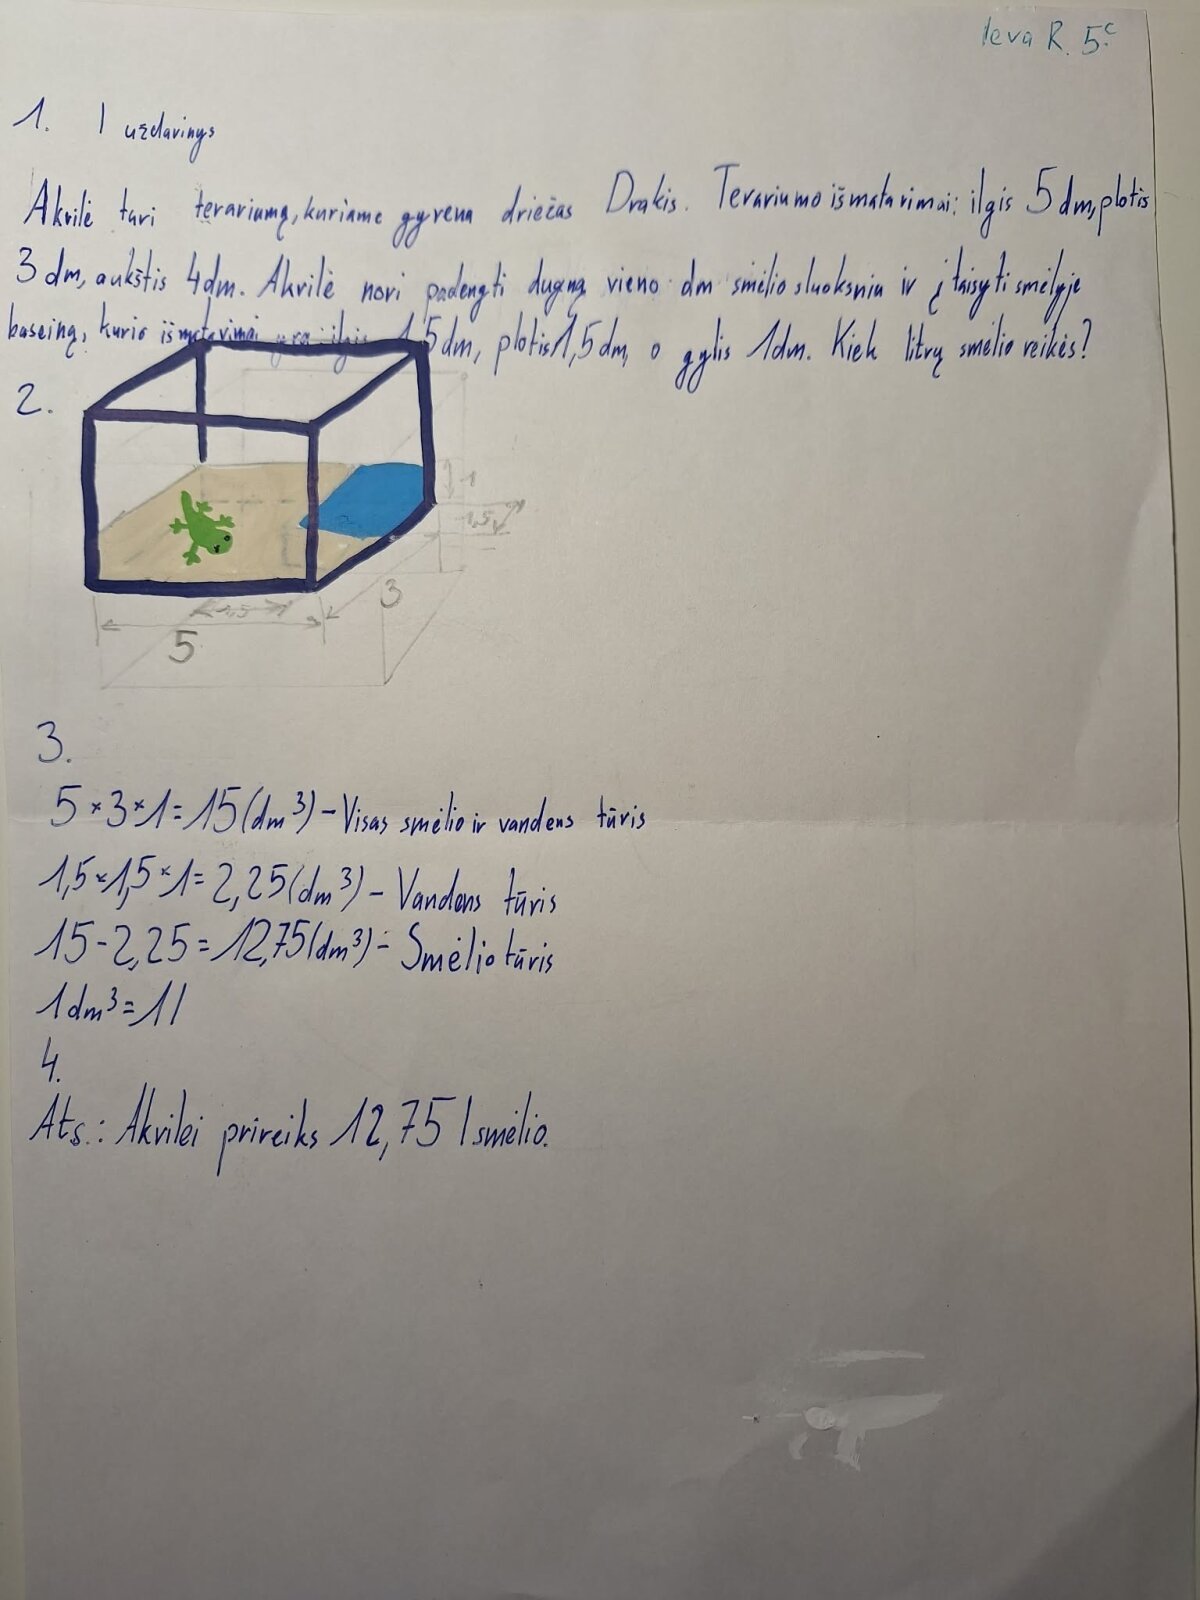 Ieva R. 5c
1. I uždavinys
Akvilė turi terariumą, kuriame gyvena driežas Drakis. Terariumo išmatavimai: ilgis 5 dm, plotis
3 dm, aukštis 4 dm. Akvilė nori padengti dugną vieno dm smėlio sluoksniu ir įtaisyti smėlyje
baseiną, kurio išmatavimai yra: ilgis 1,5 dm, plotis 1,5 dm, o gylis 1dm. Kiek litrų smėlio reikės?
2.
1
1,5
3
1,5
5
3.
5 × 3 × 1 = 15 (dm³) - Visas smėlio ir vandens tūris
1,5 × 1,5 × 1 = 2,25 (dm³) - Vandens tūris
15 - 2,25 = 12,75 (dm³) - Smėlio tūris
1 dm³ = 1 l
4.
Ats.: Akvilei prireiks 12,75 l smėlio.